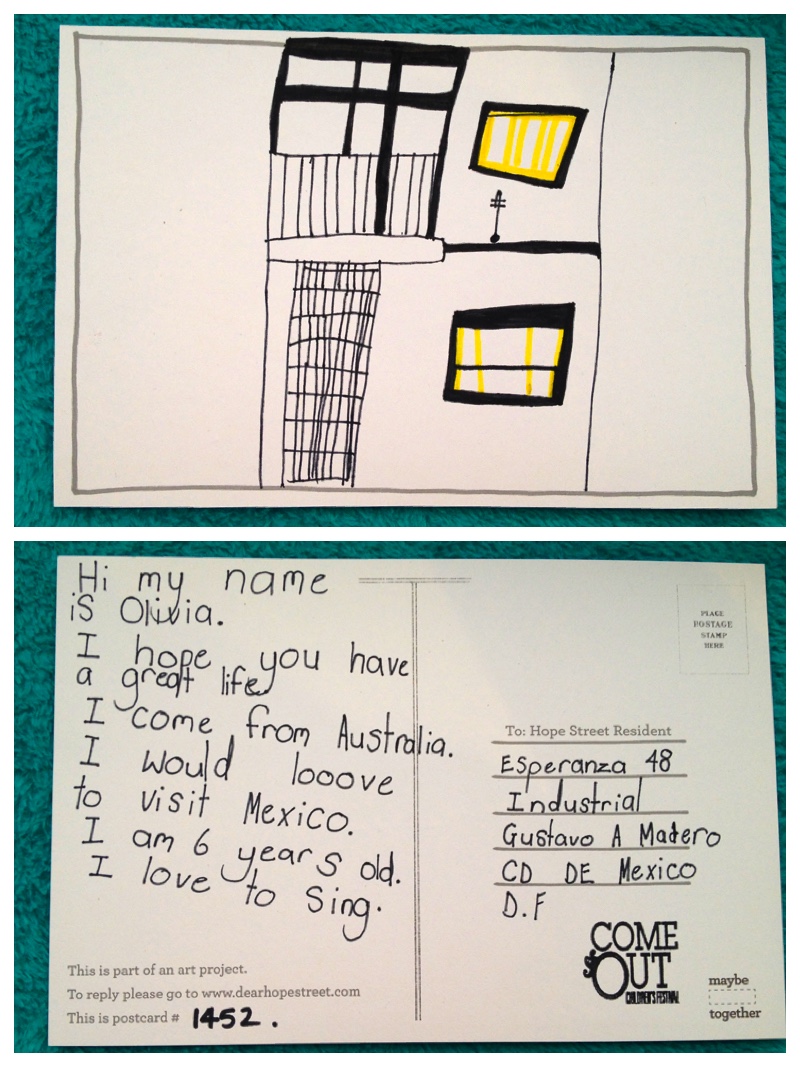 Hi my name
is Olivia.
I hope you have
a great life
I come from Australia.
I would looove
to visit Mexico.
I am 6 years old.
I love to Sing.
This is part of an art project.
To reply please go to www.dearhopestreet.com
This is postcard # 1452.
PLACE
POSTAGE
STAMP
HERE
To: Hope Street Resident
Esperanza 48
Industrial
Gustavo A Madero
CD DE Mexico
D.F
COME
OUT
CHILDREN'S FESTIVAL
maybe
together